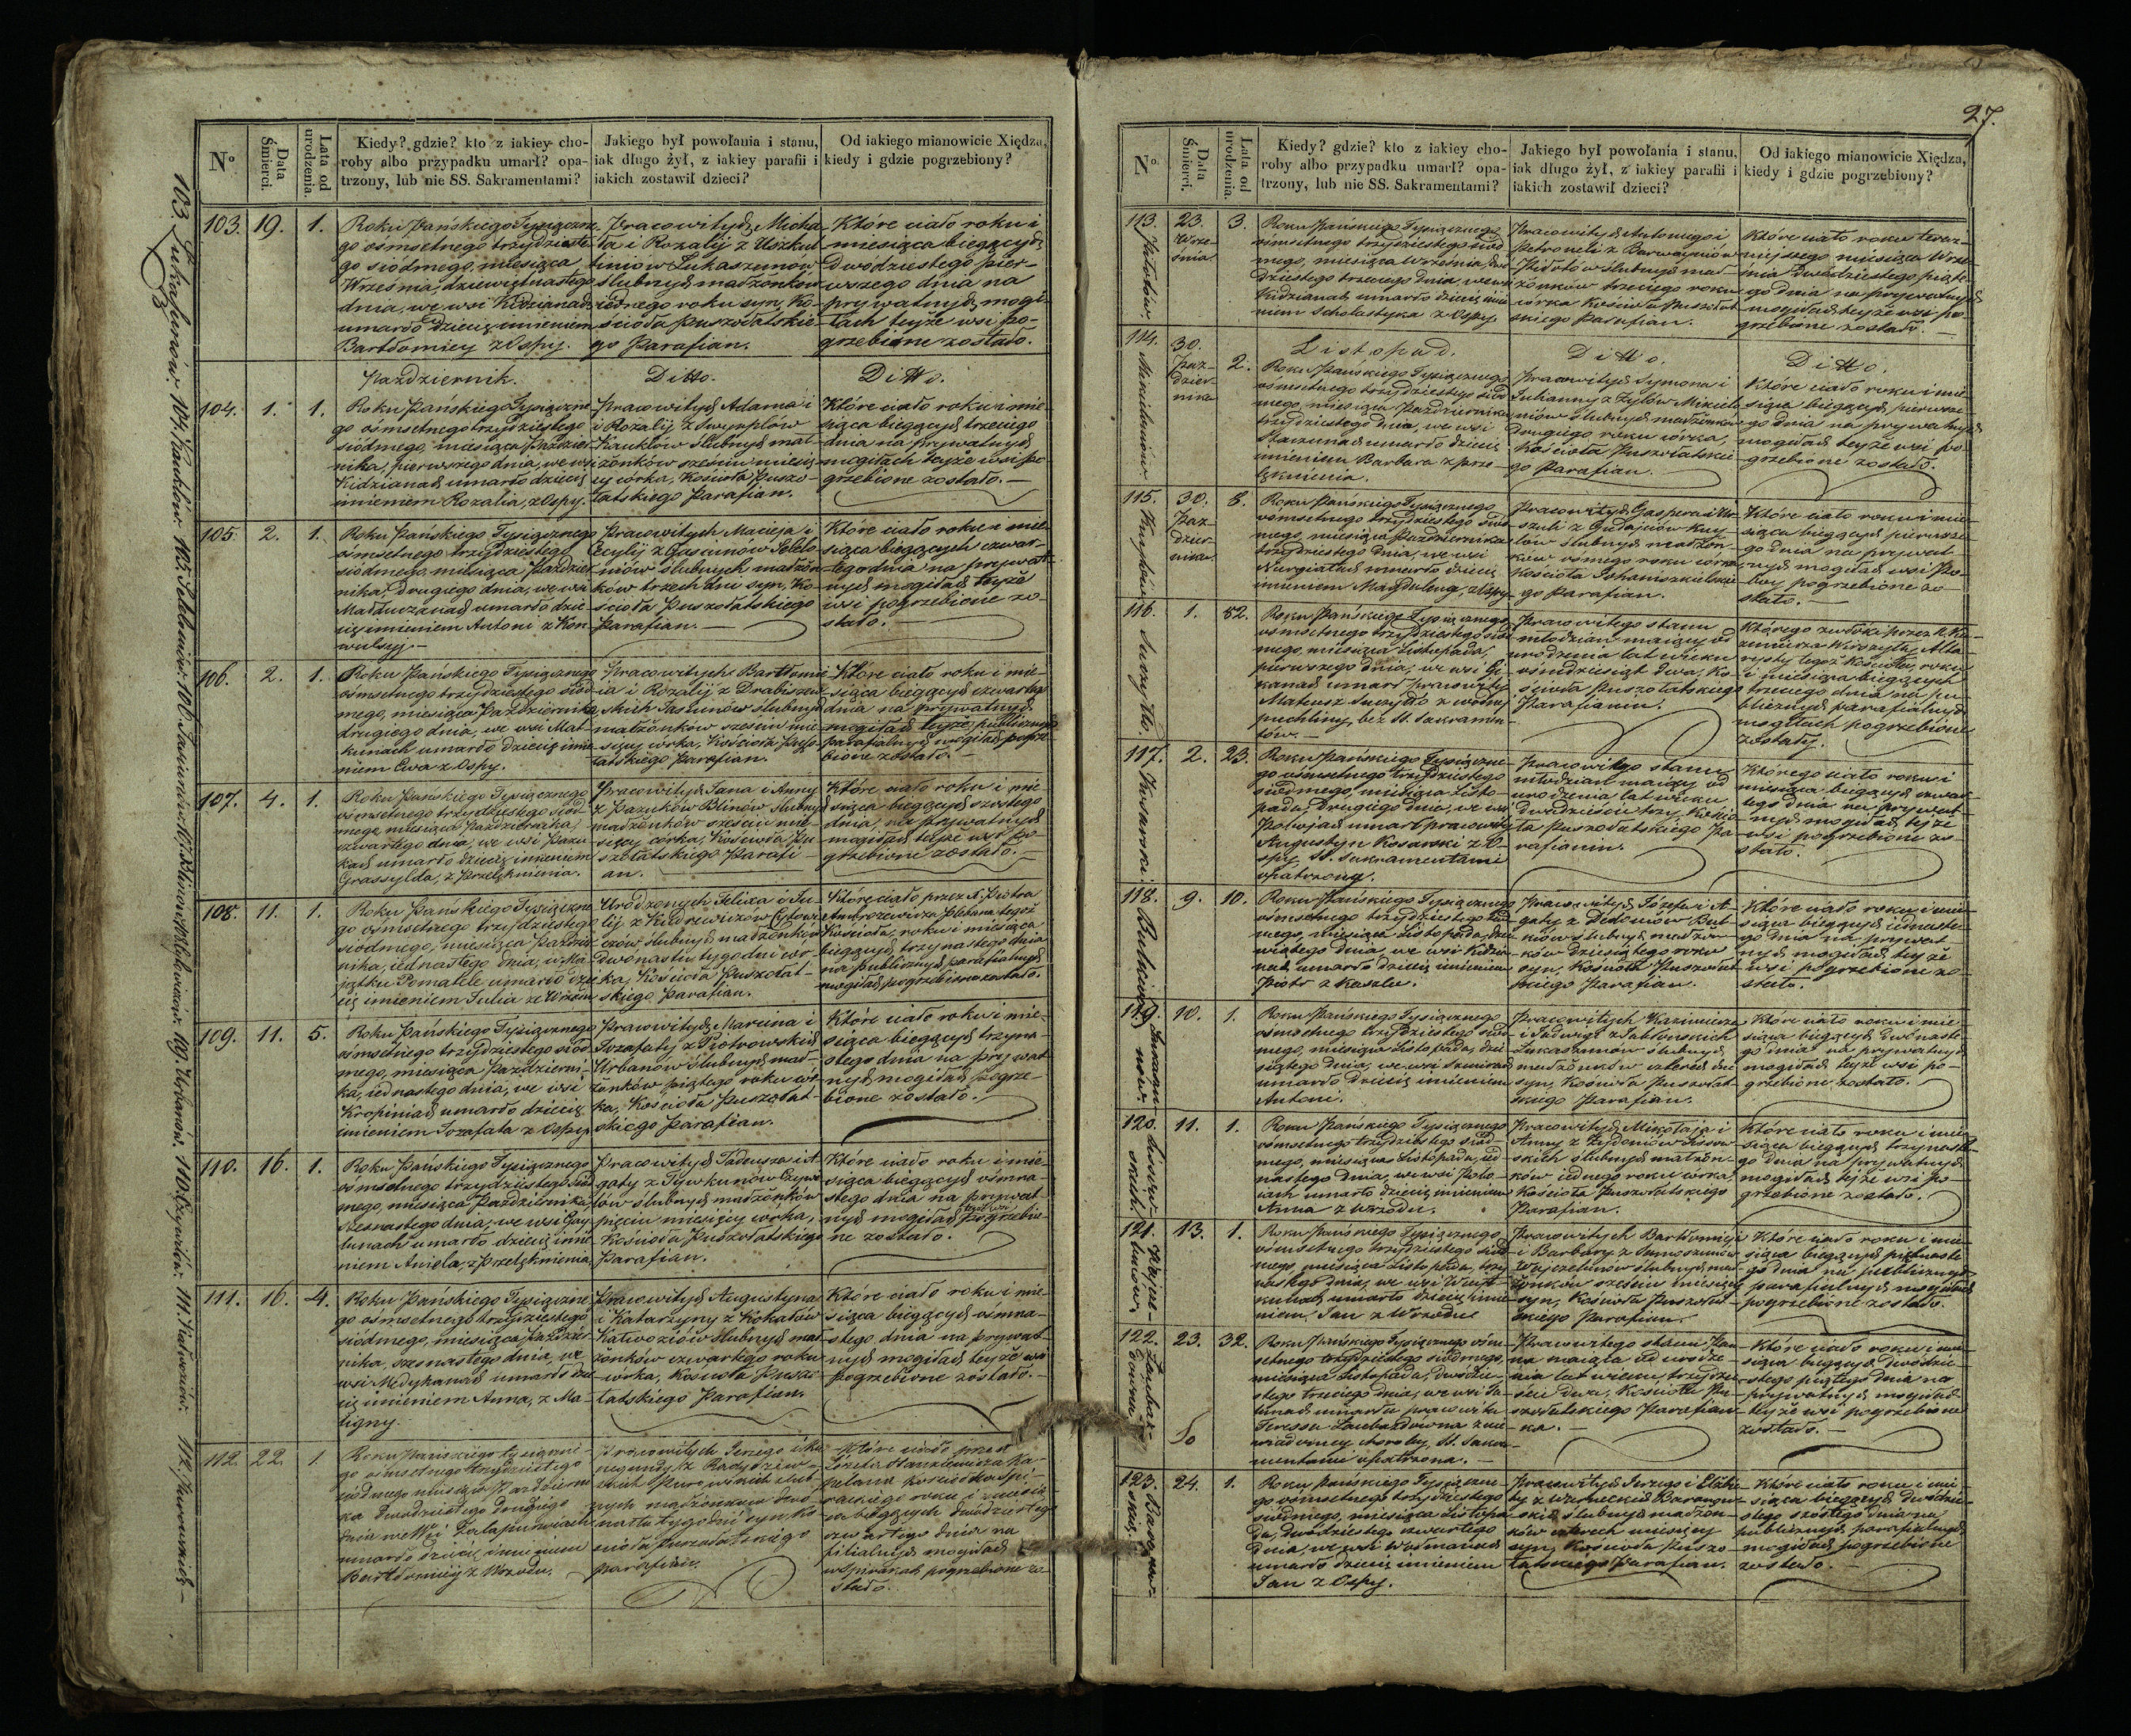 27.
Nº
Data Śmierci.
Lata od urodzenia.
Kiedy? gdzie? kto z iakiey cho-
roby albo przypadku umarł? opa-
trzony, lub nie SS. Sakramentami?
Jakiego był powołania i stanu,
iak długo żył, z iakiey parafii i
iakich zostawił dzieci?
Od iakiego mianowicie Xiędza,
kiedy i gdzie pogrzebiony?
103. 19. 1.
Roku Pańskiego Tysiączne-
go ośmsetnego trzydzieste-
go siódmego, miesiąca
Września, dziewiętnastego
dnia, we wsi Kidzianach
umarło dziecię imieniem
Bartłomiey z Ospy.
Pracowitych Micha-
ła i Rozalij z Uszkul-
Łukaszunów
ślubnych małżonków
iednego roku syn, Ko-
ścioła Puszołatskie-
go Parafian.
Które ciało roku i
miesiąca bieżących
Dwódziestego pier-
wszego dnia na
prywatnych mogi-
łach teyże wsi po-
grzebione zostało.
Październik.
Ditto.
Ditto.
104. 1. 1.
Roku Pańskiego Tysiączne-
go ośmsetnego trzydziestego
siódmego, miesiąca Paździer-
nika, pierwszego dnia, we wsi
Kidzianach umarło dziecię
imieniem Rozalia, z Ospy.
Pracowitych Adama i
Rozalij
Kauklów ślubnych mał-
żonków sześciu miesię-
cy córka, Kościoła Puszo-
łatskiego Parafian.
Które ciało roku i mie-
siąca bieżących trzeciego
dnia na prywatnych
mogiłach teyże wsi po-
grzebione zostało.
105. 2. 1.
Roku Pańskiego Tysiącznego
ośmsetnego trzydziestego
siodmego, miesiąca Paździer-
nika, drugiego dnia, we wsi
umarło dzie-
cię imieniem Antoni z Kon-
wulsyj.
Pracowitych Macieja i
Cecylij z
małżon-
ków trzech dni syn, Ko-
ścioła Puszołatskiego
Parafian.
Które ciało roku i mie-
siąca bieżących czwar-
tego dnia na prywat-
nych mogiłach teyże
wsi pogrzebione zo-
stało.
106. 2. 1.
Roku Pańskiego Tysiącznego
ośmsetnego trzydziestego siód-
mego, miesiąca Października,
drugiego dnia, we wsi Mał-
kunach umarło dziecię imie-
niem Ewa z Ospy.
Pracowitych Bartłomie-
ia i Rozalij z Drabiszew-
skich Jasiunów ślubnych
małżonków sześciu mie-
sięcy córka, Kościoła Puszo-
łatskiego Parafian.
Które ciało roku i mie-
siąca bieżących czwartego
dnia na prywatnych
mogiłach teyże publicznych
parafialnych mogiłach pogrze-
bione zostało.
107. 4. 1.
Roku Pańskiego Tysiącznego
ośmsetnego trzydziestego siód-
mego, miesiąca Października,
czwartego dnia, we wsi Pazu-
kach umarło dziecię imieniem
Grassylda, z Przelęknienia.
Pracowitych Jana i Anny
z Pazuków Blinów ślubnych
małżonków sześciu mie-
sięcy córka, Kościoła Pu-
szołatskiego Parafi-
an.
Które ciało roku i mie-
siąca bieżących szóstego
dnia, na prywatnych
mogiłach teyże wsi po-
grzebione zostało.
108. 11. 1.
Roku Pańskiego Tysiączne-
go ośmsetnego trzydziestego
siódmego, miesiąca Paździer-
nika, iednastego dnia, w Ma-
jątku Pomatele umarło dzie-
cię imieniem Julia ze Wrzodu
Urodzonych Felixa i Ju-
lij z
ślubnych małżonków
Dwónastu tygodni cór-
ka, Kościoła Puszołat-
skiego Parafian.
Które ciało przez X. Piotra
Ambrozewicza Plebana tegoż
Kościoła, roku i miesiąca
bieżących, trzynastego dnia
na publicznych parafialnych
mogiłach pogrzebione zostało.
109. 11. 5.
Roku Pańskiego Tysiącznego
ośmsetnego trzydziestego siód-
mego, miesiąca Październi-
ka, iednastego dnia, we wsi
Kropiniach umarło dziecię
imieniem Jozafata z Ospy.
Pracowitych Marcina i
Jozafaty z Piotrowskich
Urbanów ślubnych mał-
żonków piątego roku cór-
ka, Kościoła Puszołat-
skiego Parafian.
Które ciało roku i mie-
siąca bieżących trzyna-
stego dnia na prywat-
nych mogiłach pogrze-
bione zostało.
110. 16. 1.
Roku Pańskiego Tysiącznego
ośmsetnego trzydziestego siód-
mego, miesiąca Października,
szesnastego dnia, we wsi
umarło dziecię imie-
niem Aniela, z Przelęknienia.
Pracowitych Tadeusza i A-
gaty z
ślubnych małżonków
pięciu miesięcy córka,
Kościoła Puszołatskiego
Parafian.
Które ciało roku i mie-
siąca bieżących ośmna-
stego dnia na prywat-
nych mogiłach teyże wsi pogrzebio-
ne zostało.
111. 16. 4.
Roku Pańskiego Tysiączne-
go ośmsetnego trzydziestego
siódmego, miesiąca Paździer-
nika, szesnastego dnia, we
wsi Medykanach umarło dzie-
cię imieniem Anna, z Ma-
ligny.
Pracowitych Augustyna
i Katarzyny z
ślubnych mał-
żonków czwartego roku
córka, Kościoła Puszo-
łatskiego Parafian.
Które ciało roku i mie-
siąca bieżących ośmna-
stego dnia na prywat-
nych mogiłach teyże wsi
pogrzebione zostało.
112. 22. 1.
Roku Pańskiego tysiączne-
go ośmsetnego trzydziestego
siódmego miesiąca Październi-
ka dwódziestego drugiego
dnia we Wsi
umarło dziecię imieniem
Bartłomiey z Wrzodu.
Pracowitych Jerzego i Ku-
negundy z
ślub-
nych małżonków dwó-
nastu tygodni syn, Ko-
ścioła Puszołatskiego
Parafian.
Które ciało przez
Józefa Stanilewicza Ka-
pelana
roku i miesią-
ca bieżących dwódziestego
czwartego dnia na
filialnych mogiłach
pogrzebione zo-
stało.
103 Łukaszunów. 104. Kauklów. 106. Jasiunów. 109. Urbanów.
Nº
Data Śmierci.
Lata od urodzenia.
Kiedy? gdzie? kto z iakiey cho-
roby albo przypadku umarł? opa-
trzony, lub nie SS. Sakramentami?
Jakiego był powołania i stanu,
iak długo żył, z iakiey parafii i
iakich zostawił dzieci?
Od iakiego mianowicie Xiędza,
kiedy i gdzie pogrzebiony?
113. 23. Wrze-
śnia. 3.
Roku Pańskiego Tysiącznego
ośmsetnego trzydziestego siód-
mego, miesiąca Września, dwó-
dziestego trzeciego dnia, we wsi
Kidzianach umarło dziecię imie-
niem Scholastyka z Ospy.
Pracowitych Antoniego i
Petroneli z
ślubnych mał-
żonków trzeciego roku
córka Kościoła Puszołat-
skiego Parafian.
Które ciało roku teraz-
niejszego miesiąca Wrze-
śnia Dwódziestego piąte-
go dnia na prywatnych
mogiłach teyże wsi po-
grzebione zostało.
Listopad.
Ditto.
Ditto.
114. 30.
Paź-
dzier-
nika 2.
Roku Pańskiego Tysiącznego
ośmsetnego trzydziestego siód-
mego, miesiąca Października
trzydziestego dnia, we wsi
umarło dziecię
imieniem Barbara z prze-
lęknienia.
Pracowitych Symona i
Julianny z
ślubnych małżonków
Drugiego roku córka,
Kościoła Puszołatskie-
go Parafian.
Które ciało roku i mie-
siąca bieżących, pierwsze-
go dnia na prywatnych
mogiłach teyże wsi po-
grzebione zostało.
115. 30.
Paź-
dzier-
nika. 8.
Roku Pańskiego Tysiącznego
ośmsetnego trzydziestego siód-
mego, miesiąca Października
trzydziestego dnia, we wsi
umarło dziecię
imieniem Magdalena, z Ospy.
Pracowitych Gaspera i Ur-
szuli z
ślubnych małżon-
ków ósmego roku córka
Kościoła Johaniszkielskie-
go Parafian.
Które ciało roku i mie-
siąca bieżących pierwsze-
go dnia na prywat-
nych mogiłach wsi
pogrzebione zo-
stało.
116. 1. 82.
Roku Pańskiego Tysiącznego
ośmsetnego trzydziestego siód-
mego, miesiąca Listopada,
pierwszego dnia, we wsi
umarł pracowity
Mateusz z wodney
puchliny, bez SS. Sakramen-
tów.
Pracowitego stanu
młodzian maiący od
urodzenia lat wieku
ośmdziesiąt dwa, Ko-
ścioła Puszołatskiego
Parafianin.
Którego zwłoki przez X. Ka-
zimierza
tegoż Kościoła, roku
i miesiąca bieżących
trzeciego dnia na pu-
blicznych parafialnych
mogiłach pogrzebione
zostały.
117. 2. 23.
Roku Pańskiego Tysiączne-
go ośmsetnego trzydziestego
siódmego, miesiąca Listo-
pada, Drugiego dnia, we wsi
umarł pracowity
Augustyn Kosarski z O-
spy, SS. Sakramentami
opatrzony.
Pracowitego stanu
młodzian maiący od
urodzenia lat wieku
Dwadzieścia trzy, Kościo-
ła Puszołatskiego Pa-
rafianin.
Którego ciało roku i
miesiąca bieżących czwar-
tego dnia na prywat-
nych mogiłach teyże
wsi pogrzebione zo-
stało.
118. 9. 10.
Roku Pańskiego Tysiącznego
ośmsetnego trzydziestego siód-
mego, miesiąca Listopada, dzie-
wiątego dnia, we wsi Kidzia-
nach umarło dziecię imieniem
Piotr z Kaszlu.
Pracowitych Józefa i A-
gaty z But-
ków ślubnych małżon-
ków dziesiątego roku
syn, Kościoła Puszołat-
skiego Parafian.
Które ciało roku i mie-
siąca bieżących iednaste-
go dnia na prywat-
nych mogiłach teyże
wsi pogrzebione zo-
stało.
119. 10. 1.
Roku Pańskiego Tysiącznego
ośmsetnego trzydziestego siód-
mego, miesiąca Listopada, dzie-
siątego dnia, we wsi
umarło dziecię imieniem
Antoni.
Pracowitych Kazimierza
i Jadwigi z Jabłońskich
Łukaszunów ślubnych
małżonków czterech dni
syn, Kościoła Puszołat-
skiego Parafian.
Które ciało roku i mie-
siąca bieżących dwónaste-
go dnia na prywatnych
mogiłach teyże wsi po-
grzebione zostało.
120. 11. 1.
Roku Pańskiego Tysiącznego
ośmsetnego trzydziestego siód-
mego, miesiąca Listopada, ied-
nastego dnia, we wsi
umarło dziecię imieniem
Anna z wrzodu.
Pracowitych Mikołaja i
Anny z
ślubnych małżon-
ków iednego roku córka,
Kościoła Puszołatskiego
Parafian.
Które ciało roku i mie-
siąca bieżących trzynaste-
go dnia na prywatnych
mogiłach teyże wsi po-
grzebione zostało.
121. 13. 1.
Roku Pańskiego Tysiącznego
ośmsetnego trzydziestego siód-
mego, miesiąca Listopada, trzy-
nastego dnia, we wsi
umarło dziecię imie-
niem Jan z Wrzodu
Pracowitych Bartłomieja
i Barbary z
ślubnych mał-
żonków sześciu miesięcy
syn, Kościoła Puszołat-
skiego Parafian.
Które ciało roku i mie-
siąca bieżących piętnaste-
go dnia na publicznych
parafialnych mogiłach
pogrzebione zostało.
122. 23. 32.
Roku Pańskiego Tysiącznego ośm-
setnego trzydziestego siódmego,
miesiąca Listopada, dwódzie-
stego trzeciego dnia, we wsi
umarła pracowita
Teressa z nie-
wiadomey choroby, SS. Sakra-
mentami opatrzona.
Pracowitego stanu Pan-
na maiąca od urodze-
nia lat wieku, trzydzie-
ści dwa, Kościoła Pu-
szołatskiego Parafian-
ka.
Które ciało roku i mie-
siąca bieżących dwódzie-
stego piątego dnia na
prywatnych mogiłach
teyże wsi pogrzebione
zostało.
123. 24. 1.
Roku Pańskiego Tysiączne-
go ośmsetnego trzydziestego
siódmego, miesiąca Listopa-
da, dwódziestego czwartego
dnia, we wsi
umarło dziecię imieniem
Jan z Ospy.
Pracowitych Jerzego i Elżbie-
ty z
ślubnych małżon-
ków czterech miesięcy
syn, Kościoła Puszo-
łatskiego Parafian.
Które ciało roku i mie-
siąca bieżących dwódzie-
stego szóstego dnia na
publicznych parafialnych
mogiłach pogrzebione
zostało.